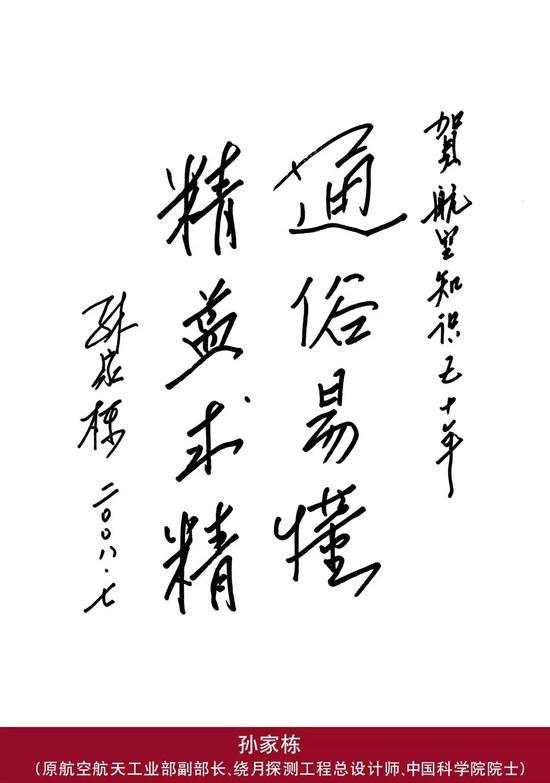 贺航空知识五十年
通俗易懂
精益求精
孙家栋
二〇〇八.七
孙家栋
(原航空航天工业部副部长、绕月探测工程总设计师、中国科学院院士)